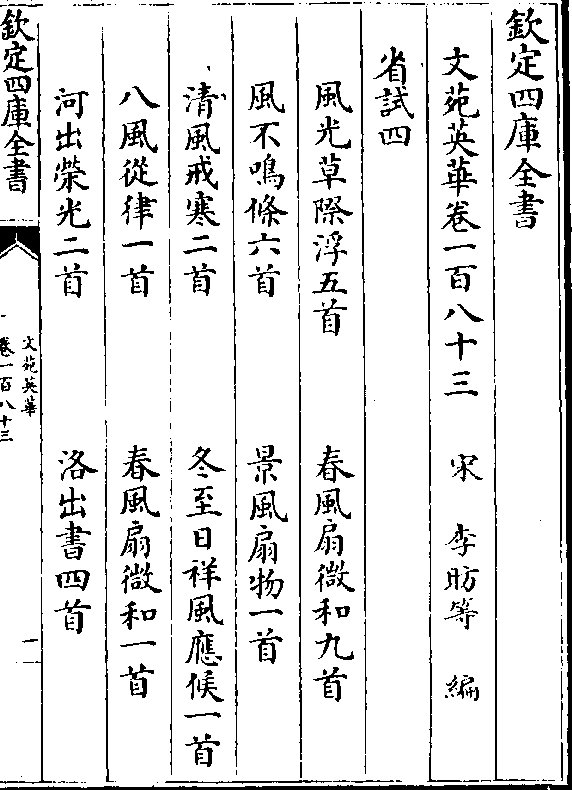 欽定四庫全書
文苑英華卷一百八十三 宋 李昉等 編
省試四
風光草際浮五首 春風扇微和九首
風不鳴條六首 景風扇物一首
清風戒寒二首 冬至日祥風應候一首
八風從律一首 春風扇微和一首
河出榮光二首 洛出書四首
欽定四庫全書
文苑英華
卷一百八十三
一